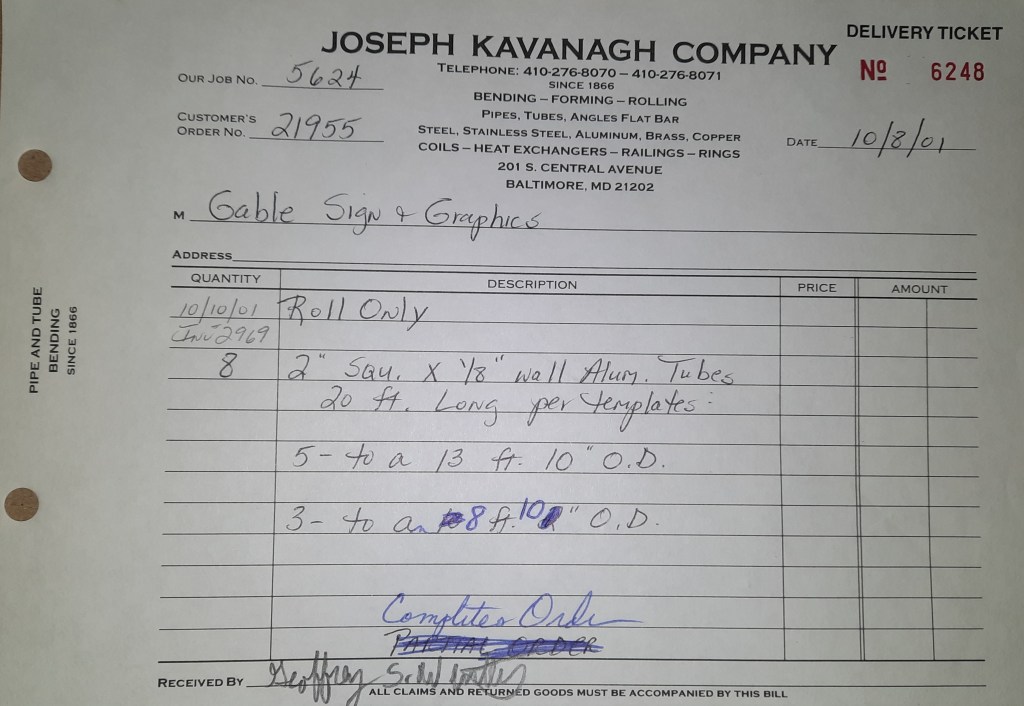 DELIVERY TICKET
JOSEPH KAVANAGH COMPANY
Nº 6248
OUR JOB NO. 5624
TELEPHONE: 410-276-8070 – 410-276-8071
SINCE 1866
BENDING – FORMING – ROLLING
CUSTOMER'S
ORDER NO. 21955
PIPES, TUBES, ANGLES FLAT BAR
STEEL, STAINLESS STEEL, ALUMINUM, BRASS, COPPER
DATE 10/8/01
COILS – HEAT EXCHANGERS – RAILINGS – RINGS
201 S. CENTRAL AVENUE
BALTIMORE, MD 21202
M Gable Sign & Graphics
ADDRESS
QUANTITY DESCRIPTION PRICE AMOUNT
10/10/01 Roll Only
Inv 2969
8 2" Squ. x 1/8" wall Alum. Tubes
20 ft. Long per templates:
5 - to a 13 ft. 10" O.D.
3 - to an 8 ft. 10" O.D.
Completes Order
PARTIAL ORDER
RECEIVED BY Geoffrey
ALL CLAIMS AND RETURNED GOODS MUST BE ACCOMPANIED BY THIS BILL
PIPE AND TUBE
BENDING
SINCE 1866